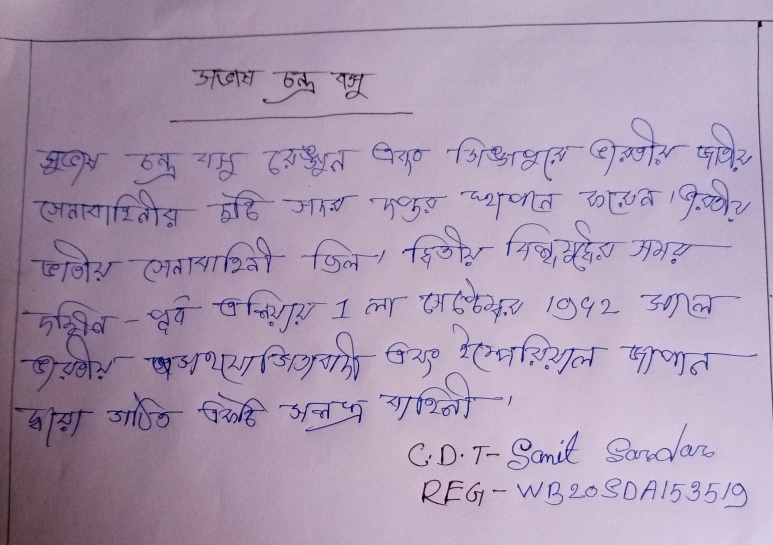 সুভাষ চন্দ্র বসু
সুভাষ চন্দ্র বসু রেঙ্গুন এবং সিঙ্গাপুরে ভারতীয় জাতীয়
সেনাবাহিনীর দুটি সদর দপ্তর স্থাপন করেন। ভারতীয়
জাতীয় সেনাবাহিনী ছিল। দ্বিতীয় বিশ্বযুদ্ধের সময়
দক্ষিন - পূর্ব এশিয়ায় 1 লা সেপ্টেম্বর 1942 সালে
ভারতীয় এবং ইম্পেরিয়াল জাপান
দ্বারা গঠিত একটি সশস্ত্র বাহিনী।
C.D.T- Samit Sardar
REG - WB20SDA153519